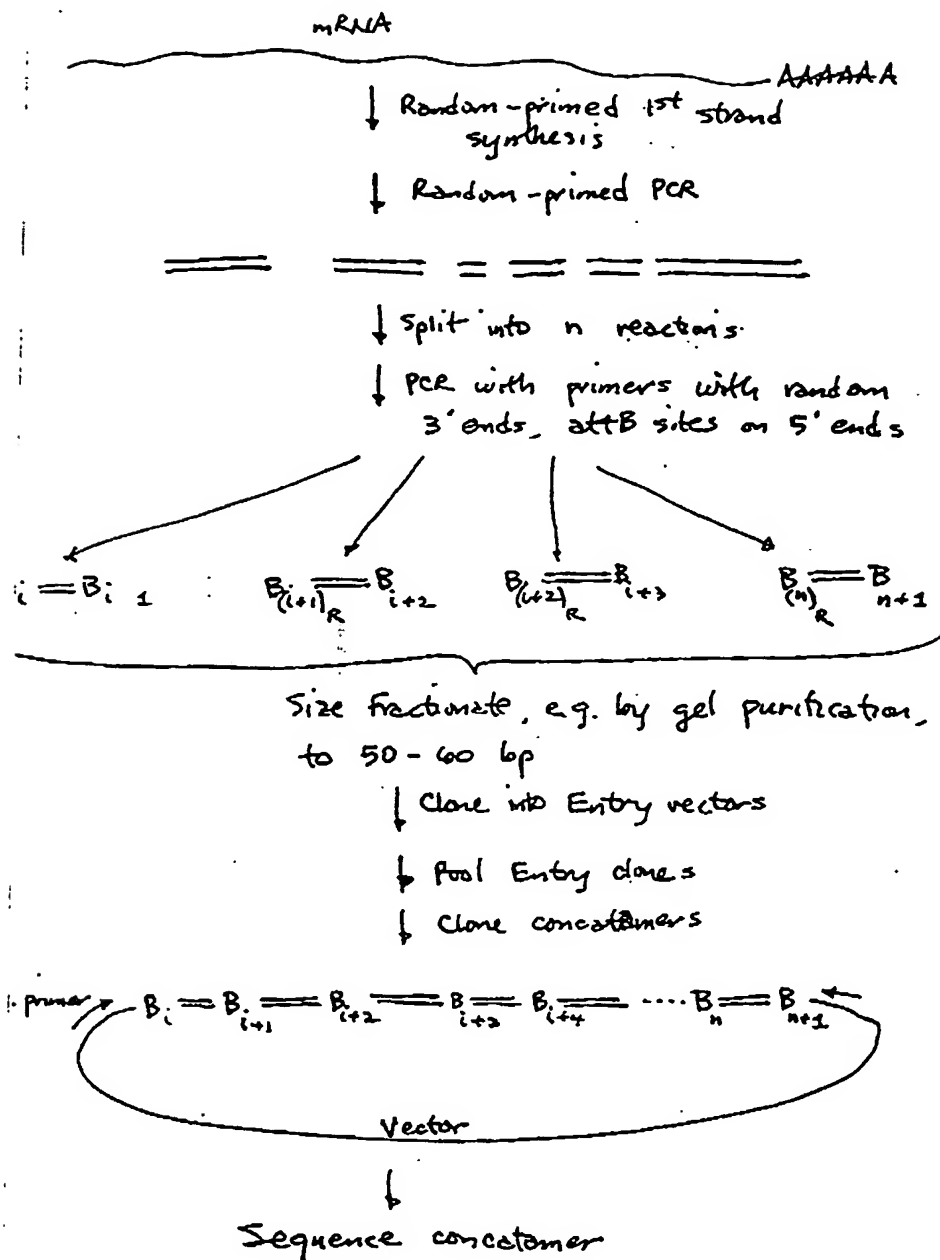 mRNA
AAAAAA
Random-primed 1st strand
synthesis
Random-primed PCR
Split into n reactions.
PCR with primers with random
3' ends, attB sites on 5' ends
i B i 1
B (i+1)R B i+2
B (i+2)R B i+3
B (n)R B n+1
Size fractionate, e.g. by gel purification,
to 50-60 bp
Clone into Entry vectors
Pool Entry clones
Clone concatamers
primer B i B i+1 B i+2 B i+3 B i+4 .... B n B n+1
Vector
Sequence concatomer